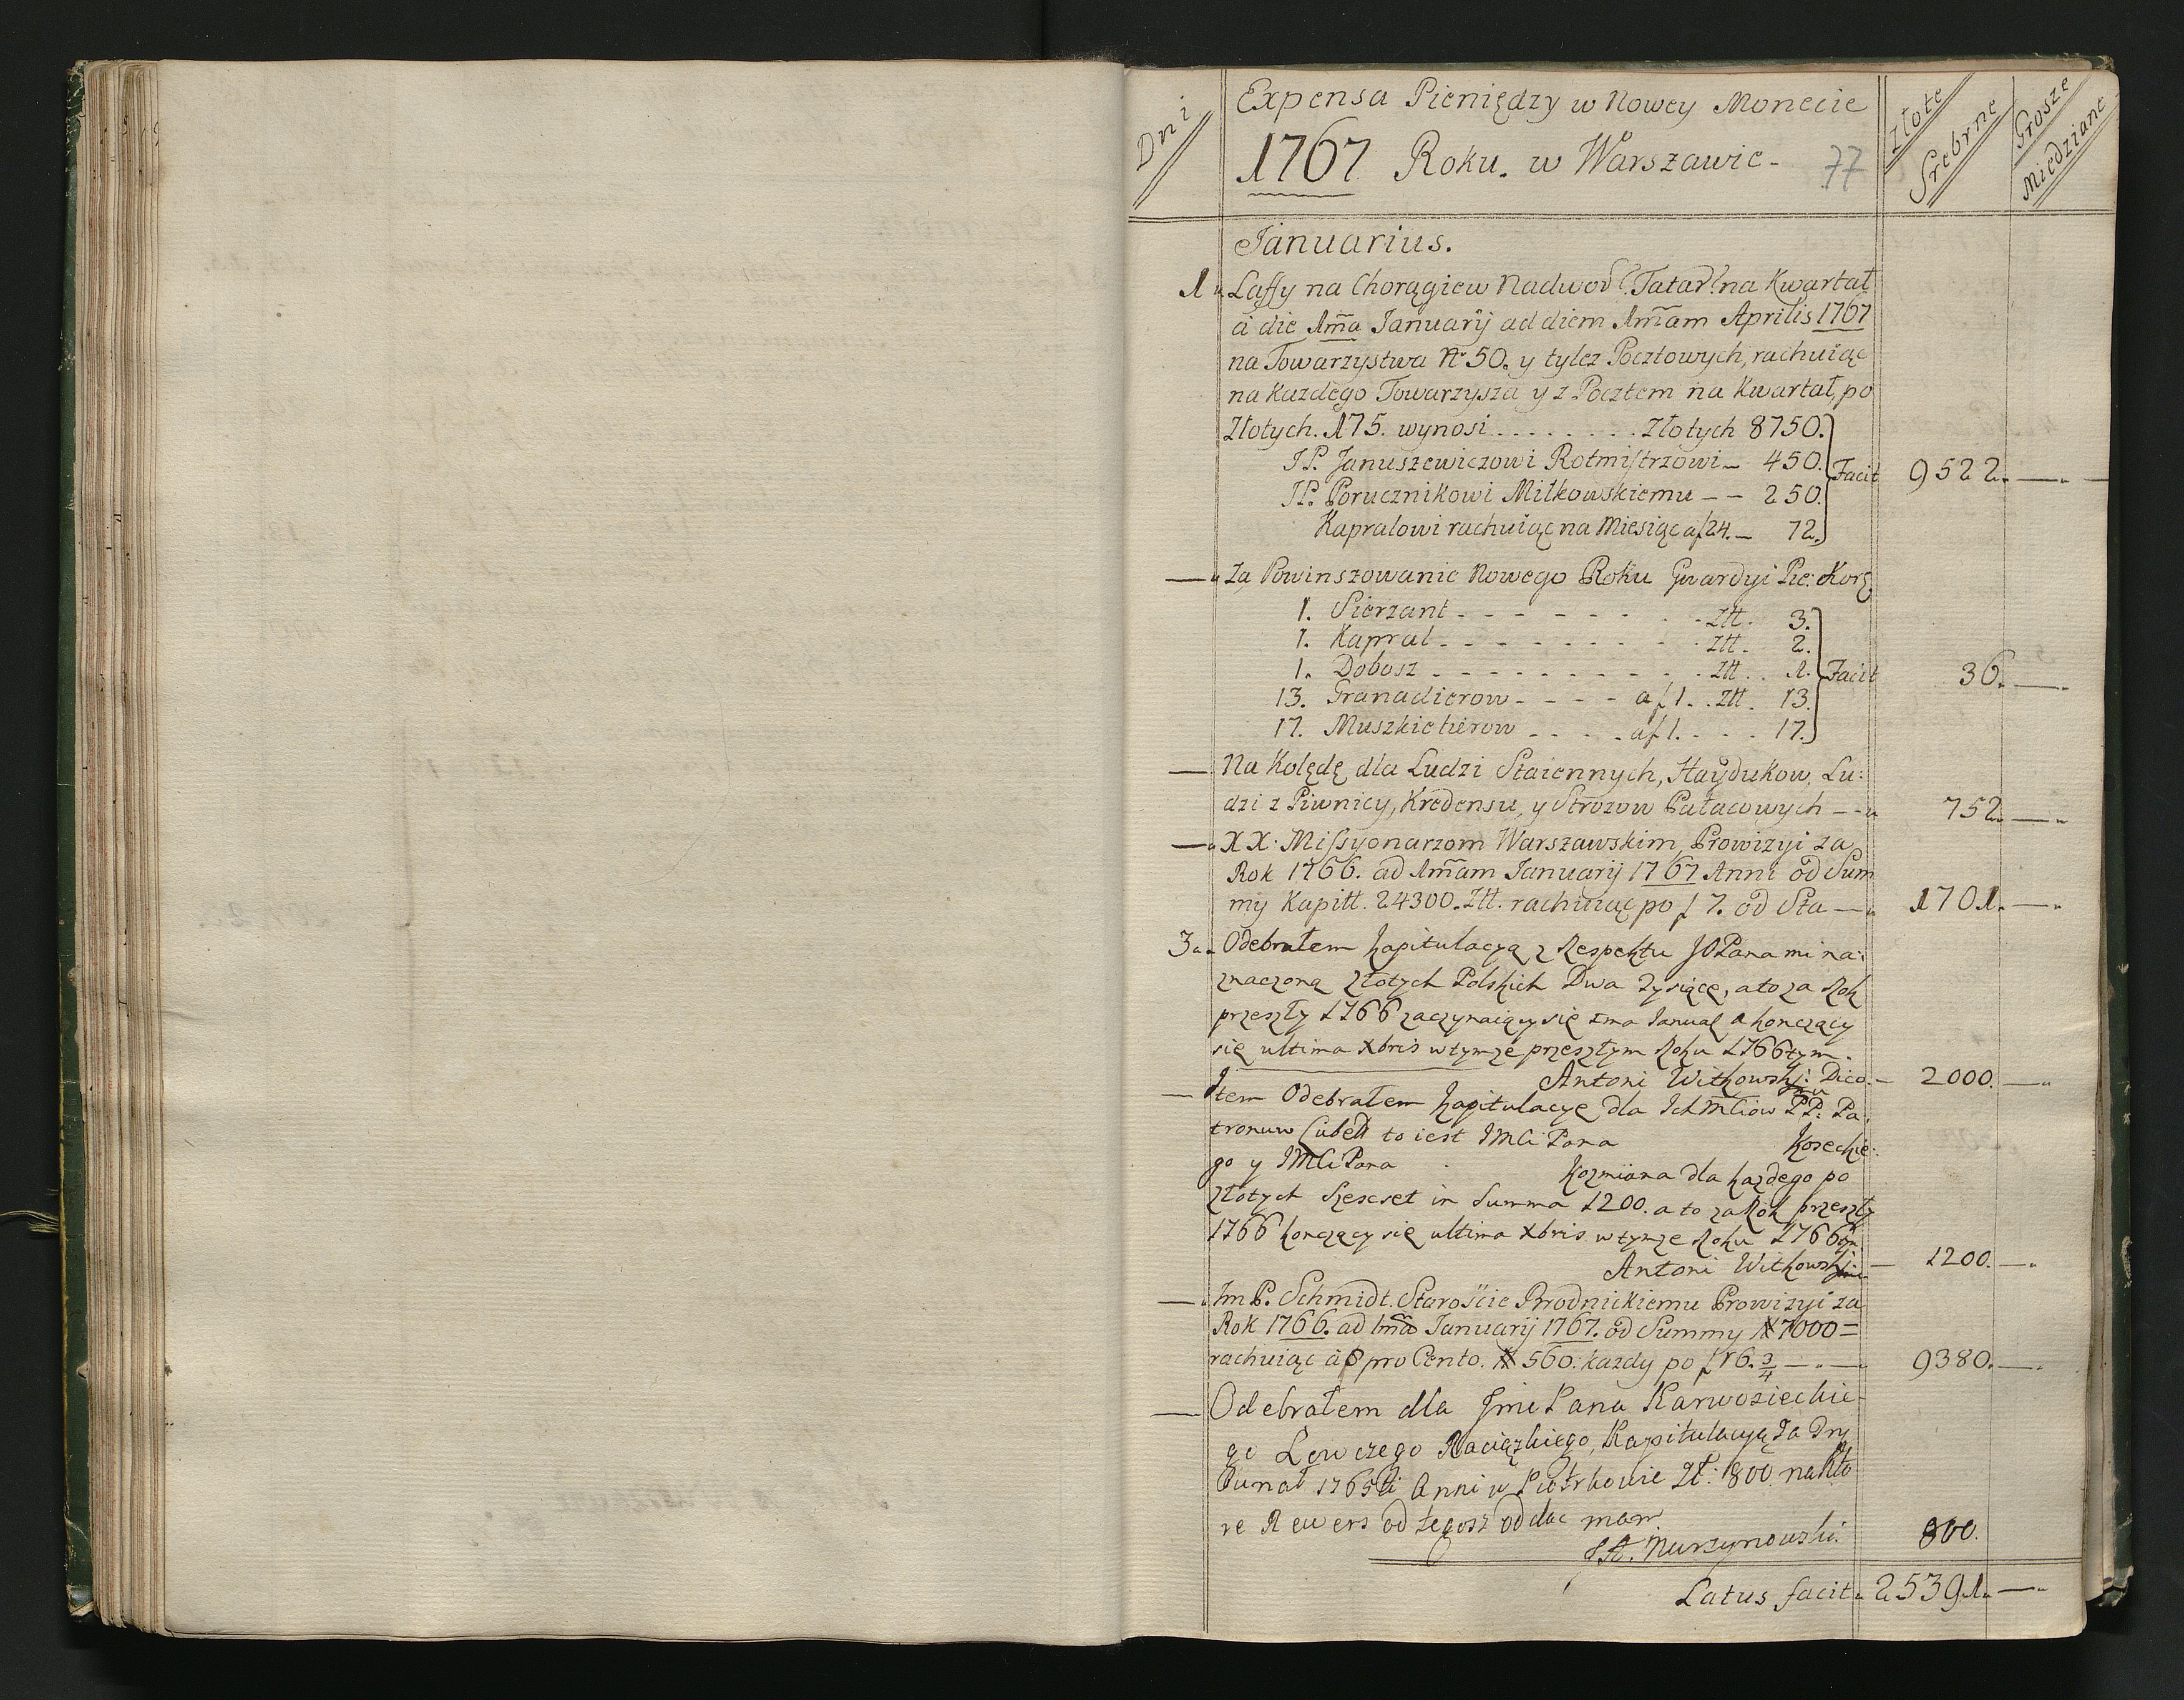 Dni
Expensa Pieniędzy w Nowey Monecie
1767 Roku. w Warszawie -
77
Złote Srebrne
Grosze Miedziane
Januarius.
1 Laffy na Chorągiew Nadwor: Tatar: na Kwartał
a die 1ma Januarij ad diem 1mam Aprilis 1767
na Towarzystwa No 50. y tylez Pocztowych, rachuiąc
na Kazdego Towarzysza y z Pocztem na Kwartał, po
Złotych. 175. wynosi . . . . . . . . Złotych 8750.
JP. Januszewiczowi Rotmistrzowi - 450. Facit 9522. —
JP. Porucznikowi Miłkowskiemu - - 250.
Kapralowi rachuiąc na Miesiąc a f 24. - 72.
— Za Powinszowanie Nowego Roku Gwardyi Pie: Kor:
1. Sierzant - - - - - - Ztt. 3.
1. Kapral - - - - - - Ztt. 2.
1. Dobosz - - - - - - Ztt. 1. Facit 36. —
13. Granadierow - - - - a f 1. . Ztt. 13.
17. Muszkietierow - - - - a f 1. . . . 17.
— Na Kolędę dla Ludzi Staiennych, Haydukow, Lu:
dzi z Piwnicy, Kredensu, y Strozow Pałacowych — 752. —
— XX. Missyonarzom Warszawskim, Prowizyi za
Rok 1766. ad 1mam Januarij 1767 Anni od Sum
my Kapitt. 24300. Ztt. rachuiąc po f 7. od Sta — 1701. —
3 Odebrałem Kapitulacyą z Respektu JO Pana mi na:
znaczoną złotych Polskich Dwa Tysiące, a to za Rok
przeszły 1766 zaczynaiący się 1ma Januar a konczący
się ultima Xbris w tymze przeszłym Roku 1766tym.
Antoni Witkowski Dico. — 2000. —
— Item Odebrałem Kapitulacye dla Ich Mciow PP: Pa:
tronuw Lubel to iest JMCi Pana Kosechie:
go y JMCi Pana Kozmiana dla kazdego po
złotych Szescset in Summa 1200. a to za Rok przeszły
1766 konczący się ultima Xbris w tymze Roku 1766
Antoni Witkowski — 1200. —
— Im P. Schmidt. Starościе Brodnickiemu Prowizyi za
Rok 1766. ad 1ma Januarij 1767. od Summy # 7000 =
rachuiąc a 8 pro Cento. # 560. kazdy po f 16. 3/4 — 9380. —
— Odebrałem dla Jmci Pana Karwosieckie
go Łowczego Raciązkiego, Kapitulacyą Za Try
bunał 1765 Anni w Piotrkowie Zł: 800 na kto
re Rewers od tegosz oddac mam
Murzynowski. 800.
Latus facit 25391. —